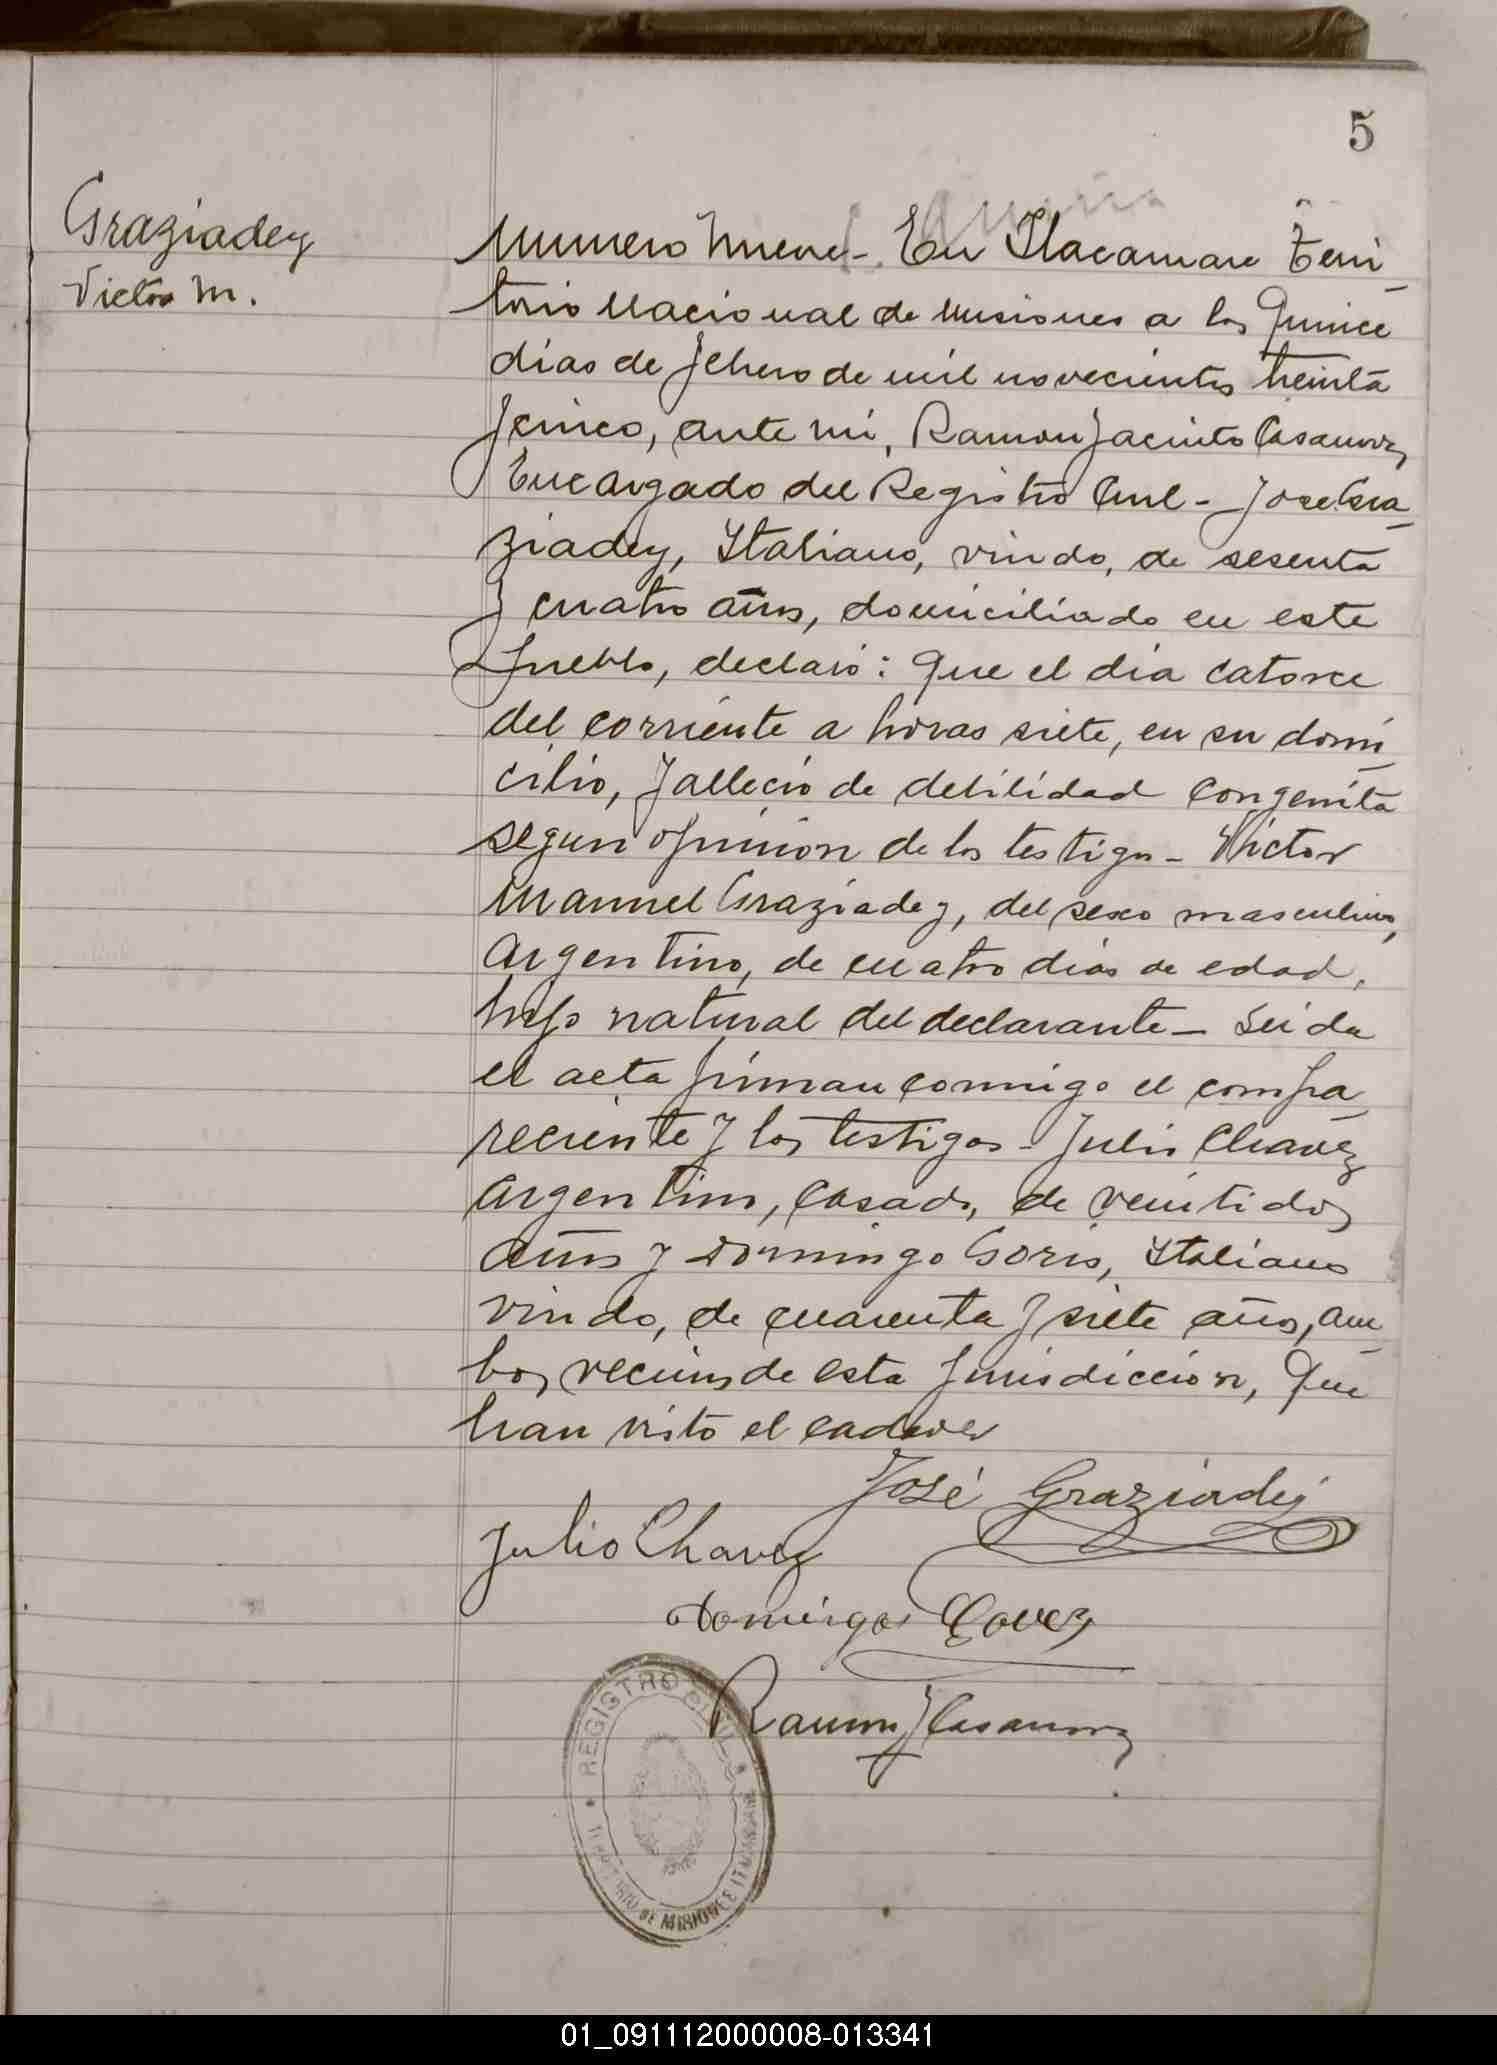 5
Graziadey
Victor M.
Numero Nueve - En Itacaruare Terri-
torio Nacional de Misiones a los Quince
dias de febrero de mil novecientos treinta
y cinco, ante mi, Ramon Jacinto Casanova
Encargado del Registro Civil - Jose Gra-
ziadey, Italiano, viudo, de sesenta
y cuatro años, domiciliado en este
pueblo, declaró: Que el dia catorce
del corriente a horas siete, en su domi-
cilio, falleció de debilidad congenita
segun opinion de los testigos - Victor
Manuel Graziadey, del sexo masculino,
Argentino, de cuatro dias de edad,
hijo natural del declarante - Leida
el acta firman conmigo el compa-
reciente y los testigos - Julio Chavez
Argentino, casado, de veintidos
años y Domingo Goris, Italiano
viudo, de cuarenta y siete años, am-
bos vecinos de esta jurisdiccion, que
han visto el cadaver
José Graziadey
Julio Chavez
Domingo
Ramon J Casanova
REGISTRO CIVIL
TERRITORIO DE MISIONES
01_091112000008-013341